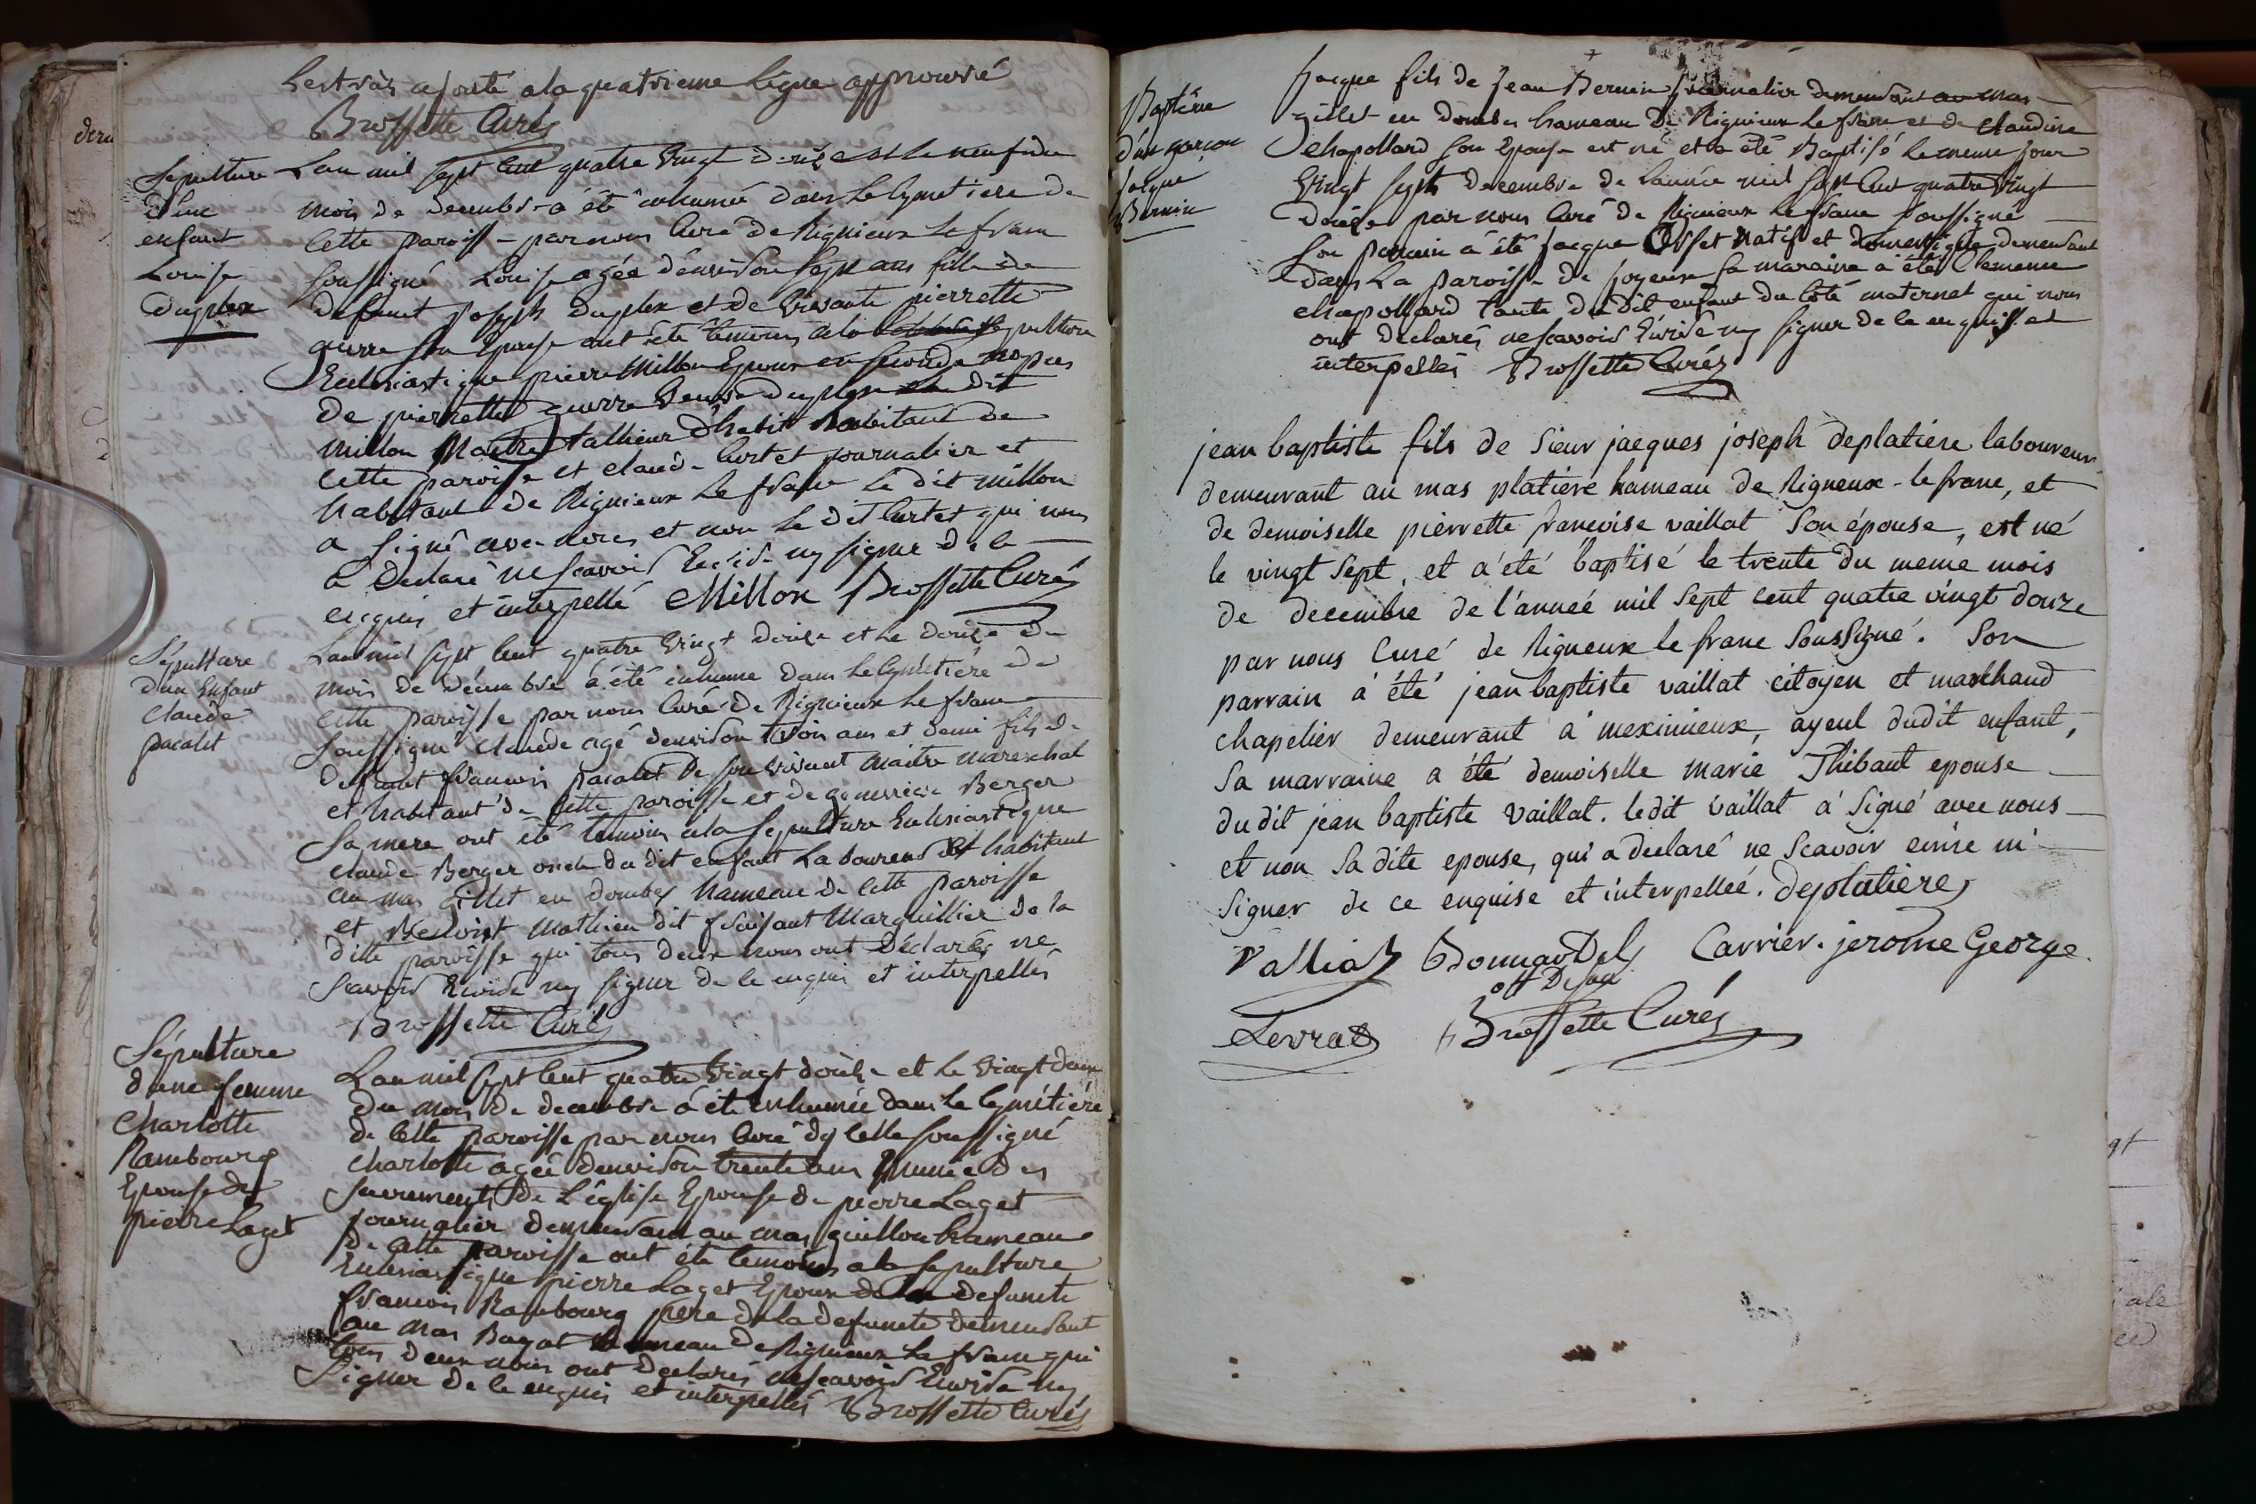 ajouté a la quatrieme ligne approuvé
Brossette Curé
Sepulture
d'une
enfant
Louise
Duplex
L'an mil sept cent quatre vingt douze et le neuf du
mois de decembre a été inhumée dans le Cymetiere de
Cette paroisse par nous Curé de Rignieux le franc
soussigné Louise agée d'environ sept ans fille de
defunt joseph Duplex et de vivante pierrette
guerre son Epouse ont été temoins a la sepulture
Ecclesiastique pierre Millon Epoux en seconde nopces
De pierrette guerre veuve Duplex le dit
Millon Maitre tallieur d'habit habitant de
Cette paroisse et claude Curtet journalier et
habitant de Rignieux le franc le dit millon
a signé avec nous et non le dit Curtet qui nous
a Declaré ne scavoir Ecrire ny signer de ce
enquis et interpellé Millon Brossette Curé
Sépulture
d'un Enfant
Claude
pacalet
L'an mil sept cent quatre vingt douze et le douze du
mois de décembre a été inhumé dans le Cymétiére de
Cette paroisse par nous Curé de Rignieux le franc
soussigné Claude agé d'environ trois ans et demi fils de
defunt francois pacalet De son vivant Maitre mareschal
et habitant de Cette paroisse et de Berger
sa mere ont été temoins a la sepulture Ecclesiastique
claude Berger oncle du dit enfant Laboureur et habitant
au mas Gillet en dombes hameau de Cette paroisse
et Benoist Mathieu dit frisant Marguillier de la
ditte paroisse qui tous deux nous ont Déclarés ne
scavoir Ecrire ny signer de ce enquis et interpellés
Brossette Curé
Sépulture
d'une femme
Charlotte
Rambourg
Epouse de
pierre Laget
L'an mil sept cent quatre vingt douze et le vingt deux
du mois de decembre a été inhumée dans le Cymétiére
de Cette paroisse par nous Curé d'y celle soussigné
Charlotte agée d'environ trente ans munie des
sacrements de L'église Epouse de pierre Laget
journalier demeurant au mas guillon hameau
de Cette paroisse ont été temoins a la sepulture
Ecclesiastique pierre Laget Epoux de la defuncte
francois Rambourg pere de la defuncte demeurant
au mas Bagat hameau de Rignieux le franc qui
tous deux nous ont declarés ne scavoir Ecrire ny
signer de ce enquis et interpellés Brossette Curé
Baptême
d'un garçon
jacque
Bernin
jacque fils de jean Bernin journalier demeurant au mas
gillet en dombes hameau de Rignieux le franc et de claudine
chapollard son Epouse est né et a été Baptisé le meme jour
vingt sept decembre de l'année mil sept cent quatre vingt
douze par nous Curé de Rignieux le franc soussigné
son parrain a été jacque Orset natif et domestique demeurant
dans La paroisse de joyeux sa maraine a été Clemence
chapollard tante du dit enfant du coté maternel qui nous
ont declarés ne scavoir Ecrire ny signer de ce enquis et
interpellés Brossette Curé
jean baptiste fils de sieur jacques joseph deplatiere laboureur
demeurant au mas platiere hameau de Rigneux-le franc, et
de demoiselle pierrette francoise vaillat son épouse, est né
le vingt sept, et a été baptisé le trente du meme mois
de decembre de l'anneé mil sept cent quatre vingt douze
par nous Curé de Rigneux le franc soussigné. Son
parrain a été jean baptiste vaillat citoyen et marchand
chapelier demeurant a meximieux, ayeul dudit enfant,
sa marraine a été demoiselle marie Thibaut epouse
du dit jean baptiste vaillat. ledit vaillat a signé avec nous
et non sa dite epouse, qui a declaré ne scavoir ecrire ni
signer de ce enquise et interpelleé. deplatiere
Valliat Bonnardel Carrier. jerome George
Levrat Brossette Curé